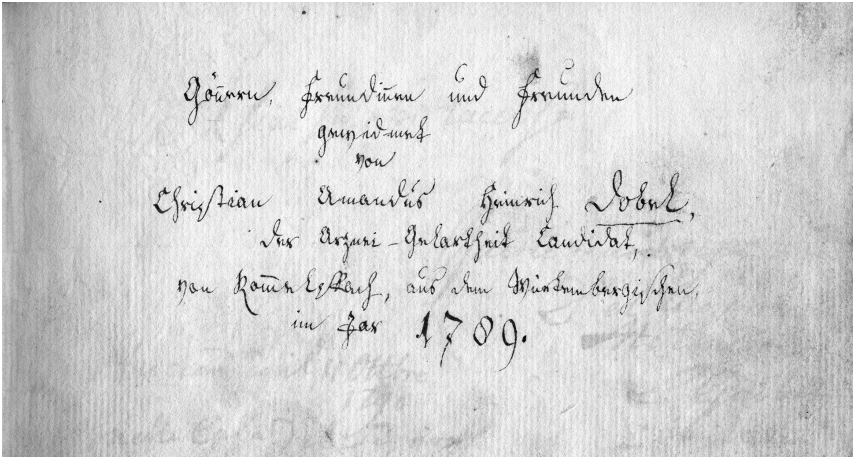 Gön̄ern, Freundin̄en und Freunden
gewidmet
von
Christian Amandus Heinrich Dobel,
der Arznei-Gelartheit Candidat,
von Rom̄elspach, aus dem Würtembergischen,
im Jar 1789.